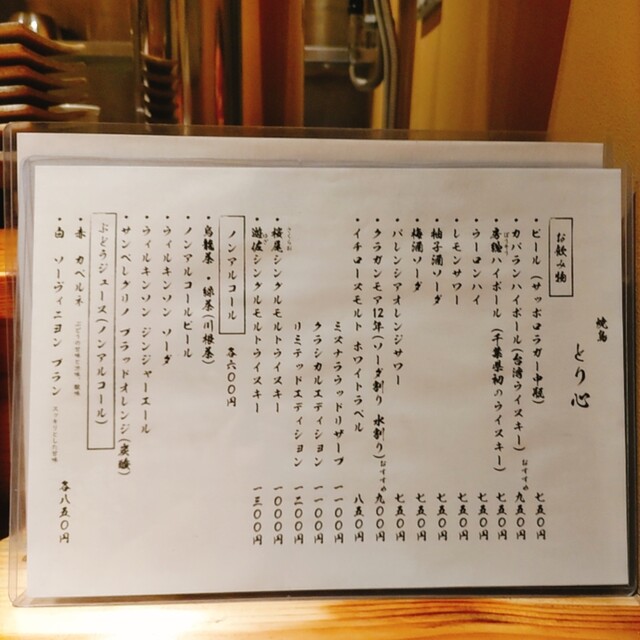 焼鳥 とり心
お飲み物
・ビール（サッポロラガー中瓶） 七五〇円
・カバランハイボール（台湾ウイスキー）おすすめ 九五〇円
・房総ハイボール（千葉県初のウイスキー） 七五〇円
ぼうそう
・ウーロンハイ 七五〇円
・レモンサワー 七五〇円
・柚子酒ソーダ 七五〇円
・梅酒ソーダ 七五〇円
・バレンシアオレンジサワー 七五〇円
・クラガンモア12年（ソーダ割り 水割り）おすすめ 九〇〇円
・イチローズモルト ホワイトラベル 八五〇円
ミズナラウッドリザーブ 一一〇〇円
クラシカルエディション 一一〇〇円
リミテッドエディション 一二〇〇円
・桜尾シングルモルトウイスキー 一〇〇〇円
さくらお
・遊佐シングルモルトウイスキー 一三〇〇円
ノンアルコール 各六〇〇円
・烏龍茶 ・緑茶（川根茶）
・ノンアルコールビール
・ウィルキンソン ソーダ
・ウィルキンソン ジンジャーエール
・サンペレグリノ ブラッドオレンジ（炭酸）
ぶどうジュース（ノンアルコール）
・赤 カベルネ
・白 ソーヴィニヨン ブラン 各八五〇円